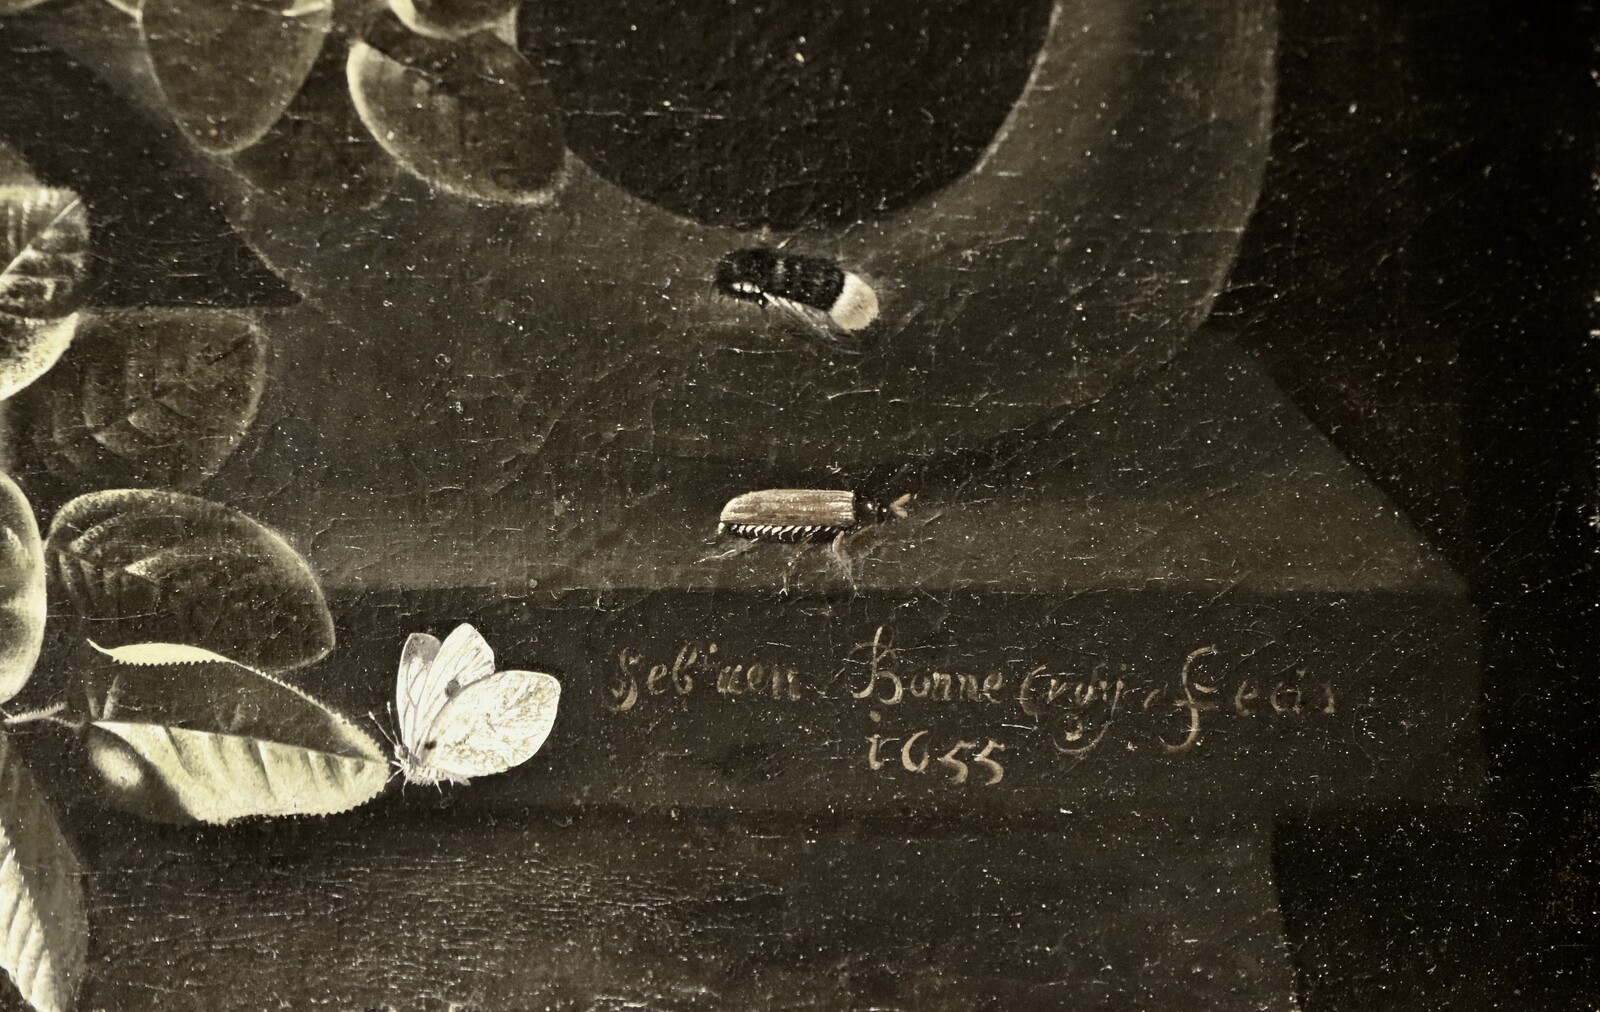 Sebᵃaen Bonnecroÿ, Fecit
1655